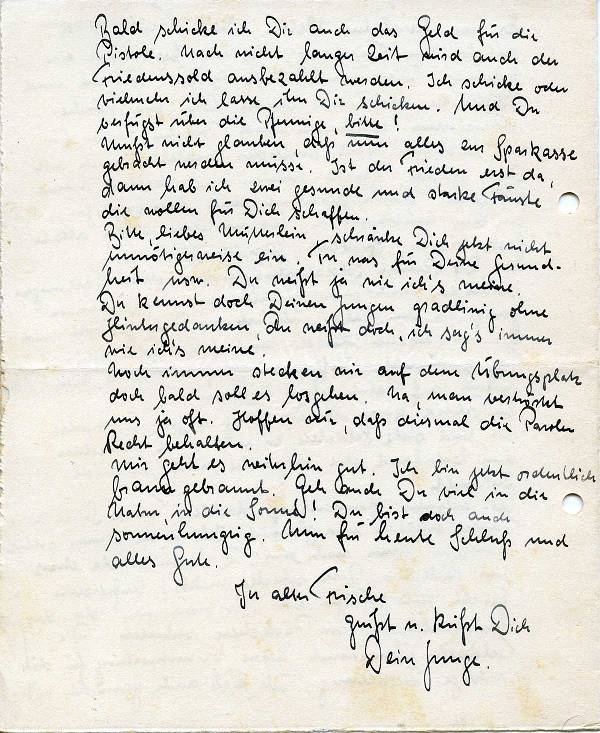 Bald schicke ich Dir auch das Geld für die
Pistole. Nach nicht langer Zeit wird auch der
Friedenssold ausbezahlt werden. Ich schicke oder
vielmehr ich lasse ihn Dir schicken. Und Du
verfügst über die Pfennige, bitte!
Mußt nicht glauben, daß nun alles zur Sparkasse
gebracht werden müsse. Ist der Frieden erst da,
dann hab ich zwei gesunde und starke Fäuste
die wollen für Dich schaffen.
Bitte, liebes Mütterlein, schränke Dich jetzt nicht
unnötigerweise ein. Tu was für Deine Gesund-
heit usw. Du weißt ja wie ich's meine.
Du kennst doch Deinen Jungen gradlinig ohne
Hintergedanken, Du weißt doch, ich sag's immer
wie ich's meine.
Noch immer stecken wir auf dem Übungsplatz
doch bald soll es losgehen. Na, man vertröstet
uns ja oft. Hoffen wir, daß diesmal die Parolen
Recht behalten.
Mir geht es weiterhin gut. Ich bin jetzt ordentlich
braun gebrannt. Geh auch Du viel in die
Natur, in die Sonne! Du bist doch auch
sonnenhungrig. Nun für heute Schluß und
alles Gute.
In alter Frische
grüßt u. küßt Dich
Dein Junge.